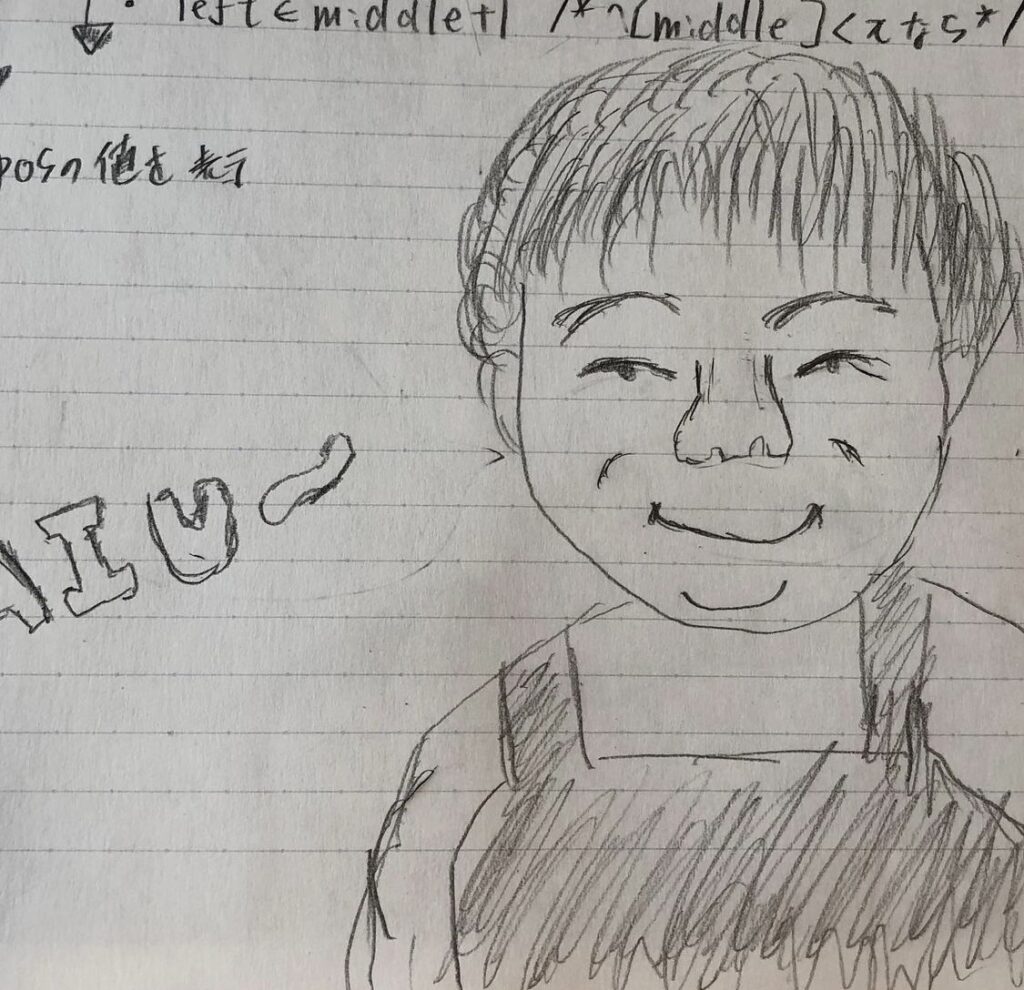 left ← middle+1 /* [middle]<xなら*/
posの値を表示
AIU